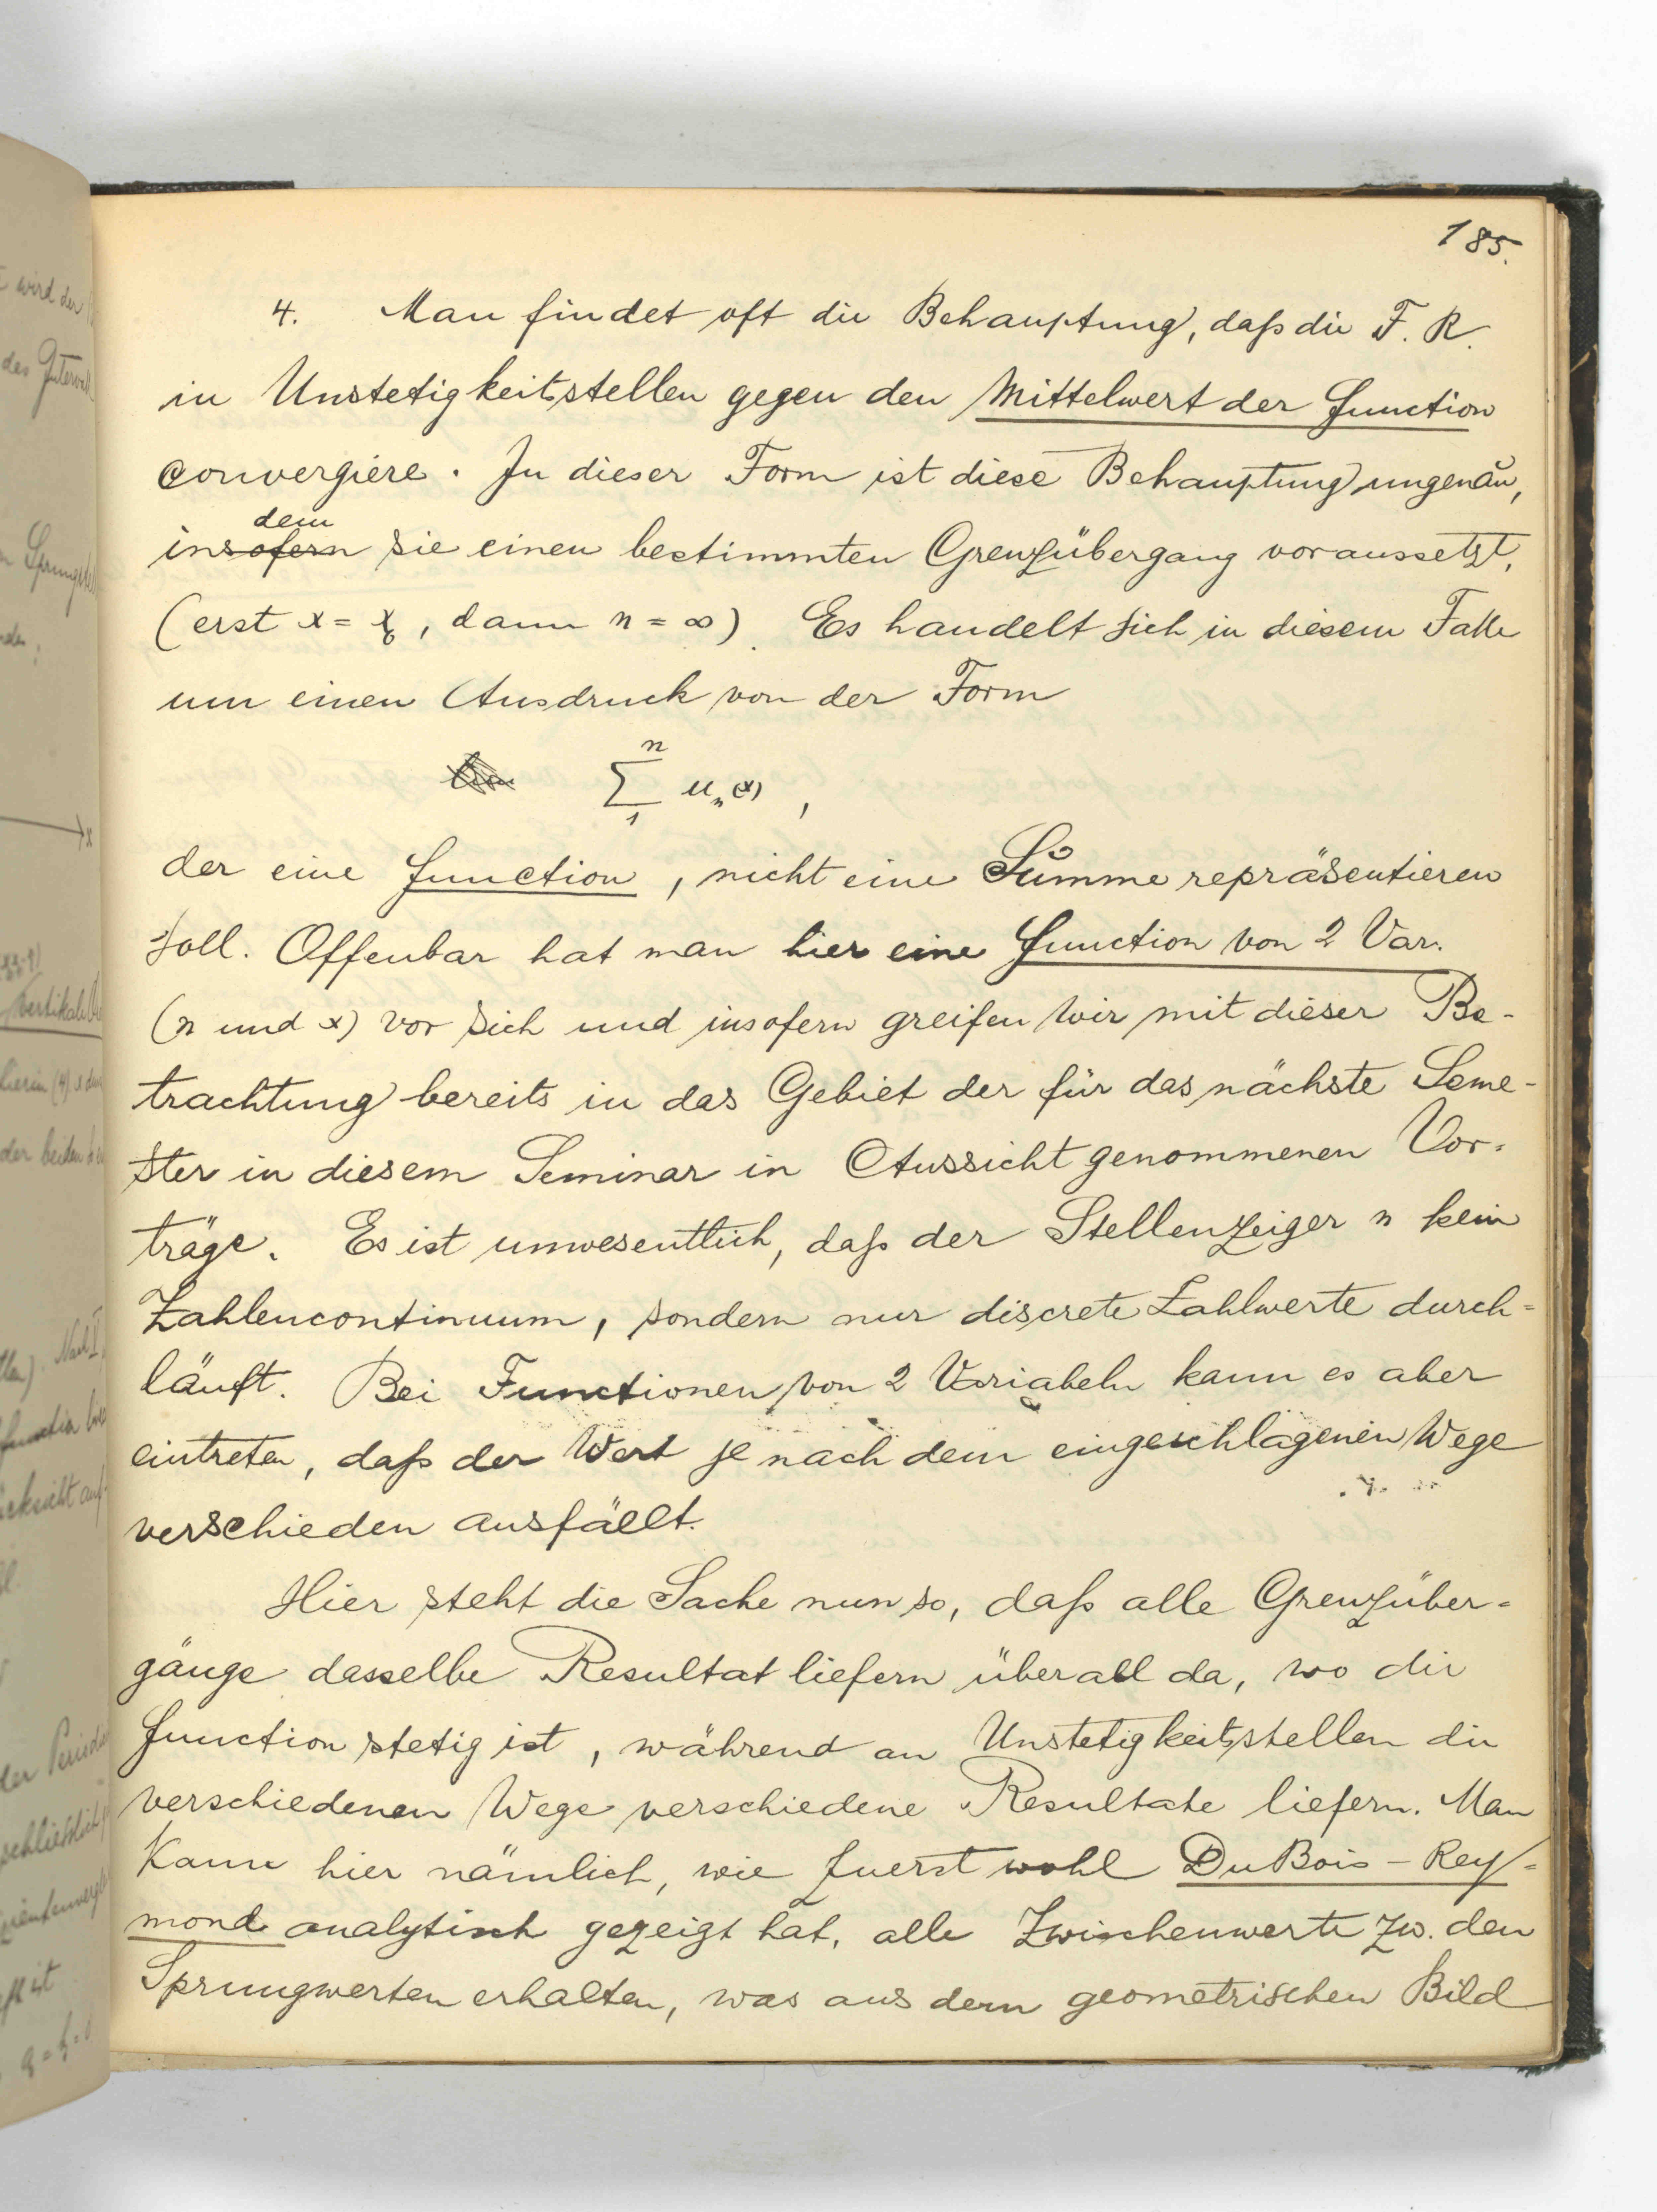 185.
4. Man findet oft die Behauptung, daß die F. R.
in Unstetigkeitsstellen gegen den Mittelwert der Function
convergiere. In dieser Form ist diese Behauptung ungenau,
indem sie einen bestimmten Grenzübergang voraussetzt,
(erst x = x₀, dann n = ∞). Es handelt sich in diesem Falle
um einen Ausdruck von der Form
n
∑ uₙ(x),
1
der eine Function, nicht eine Summe repräsentieren
soll. Offenbar hat man hier eine Function von 2 Var.
(n und x) vor sich und insofern greifen wir mit dieser Be-
trachtung bereits in das Gebiet der für das nächste Seme-
ster in diesem Seminar in Aussicht genommenen Vor-
träge. Es ist unwesentlich, daß der Stellenzeiger n kein
Zahlencontinuum, sondern nur discrete Zahlwerte durch-
läuft. Bei Functionen von 2 Variabeln kann es aber
eintreten, daß der Wert je nach dem eingeschlagenen Wege
verschieden ausfällt.
Hier steht die Sache nun so, daß alle Grenzüber-
gänge dasselbe Resultat liefern überall da, wo die
Function stetig ist, während an Unstetigkeitsstellen die
verschiedenen Wege verschiedene Resultate liefern. Man
kann hier nämlich, wie zuerst wohl DuBois-Rey-
mond analytisch gezeigt hat, alle Zwischenwerte zw. den
Sprungwerten erhalten, was aus dem geometrischen Bild